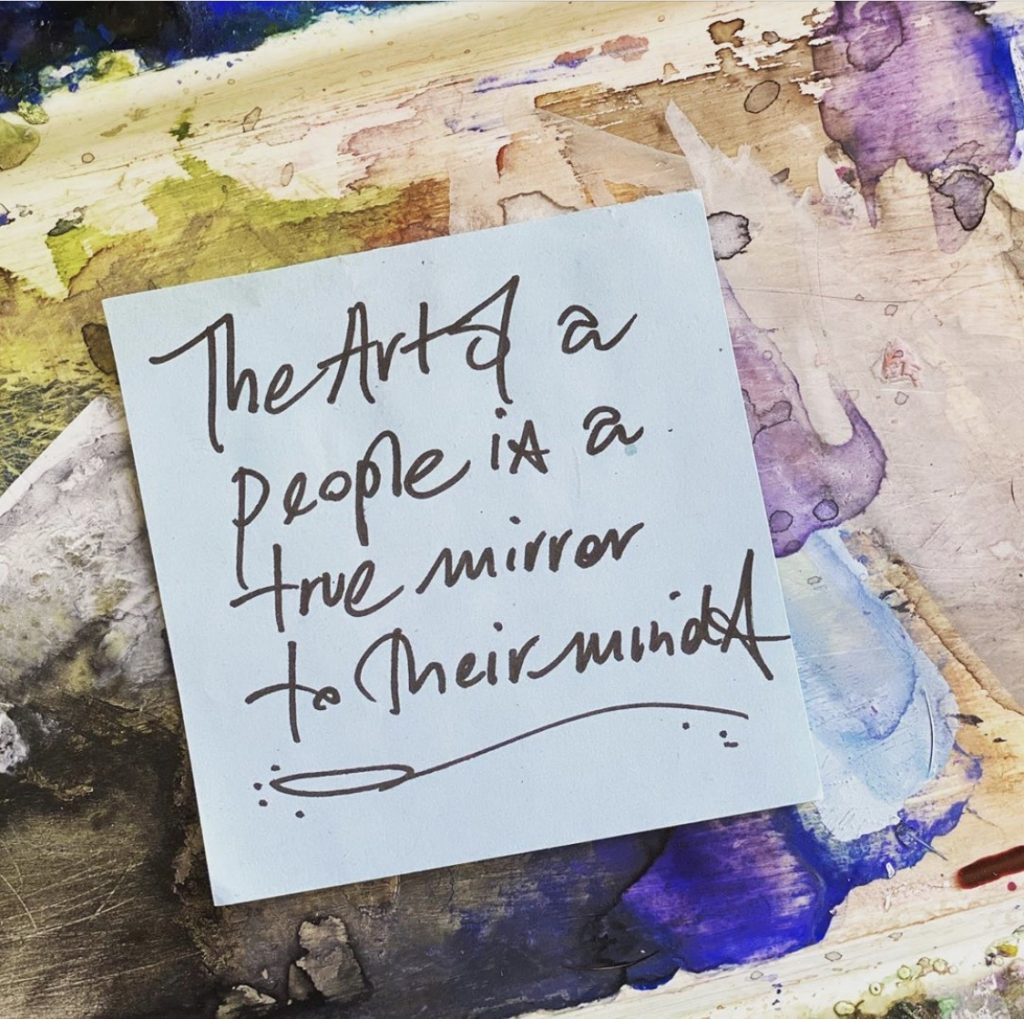 The Art of a
people is a
true mirror
to Their minds